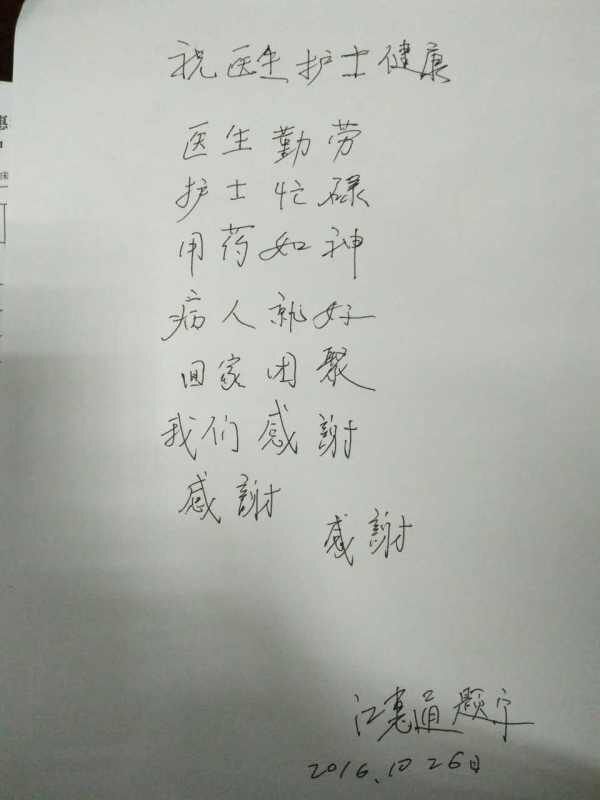 祝医生护士健康
医生勤劳
护士忙碌
用药如神
病人就好
回家团聚
我们感謝
感謝
感謝
江惠通题字
2016.10 26日
惠
床